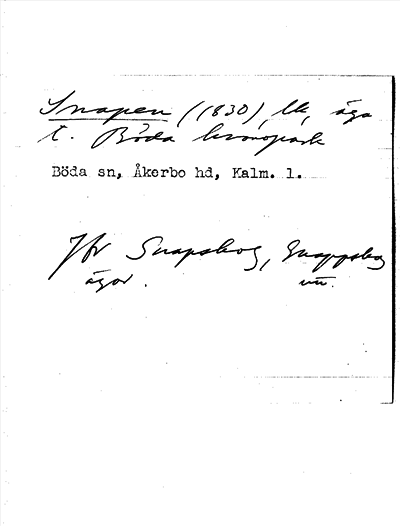 Snapen (1830), lk, äga
t. Böda kronopark
Böda sn, Åkerbo hd, Kalm. l.
Jfr Snapskog, Snappskog
ägor.